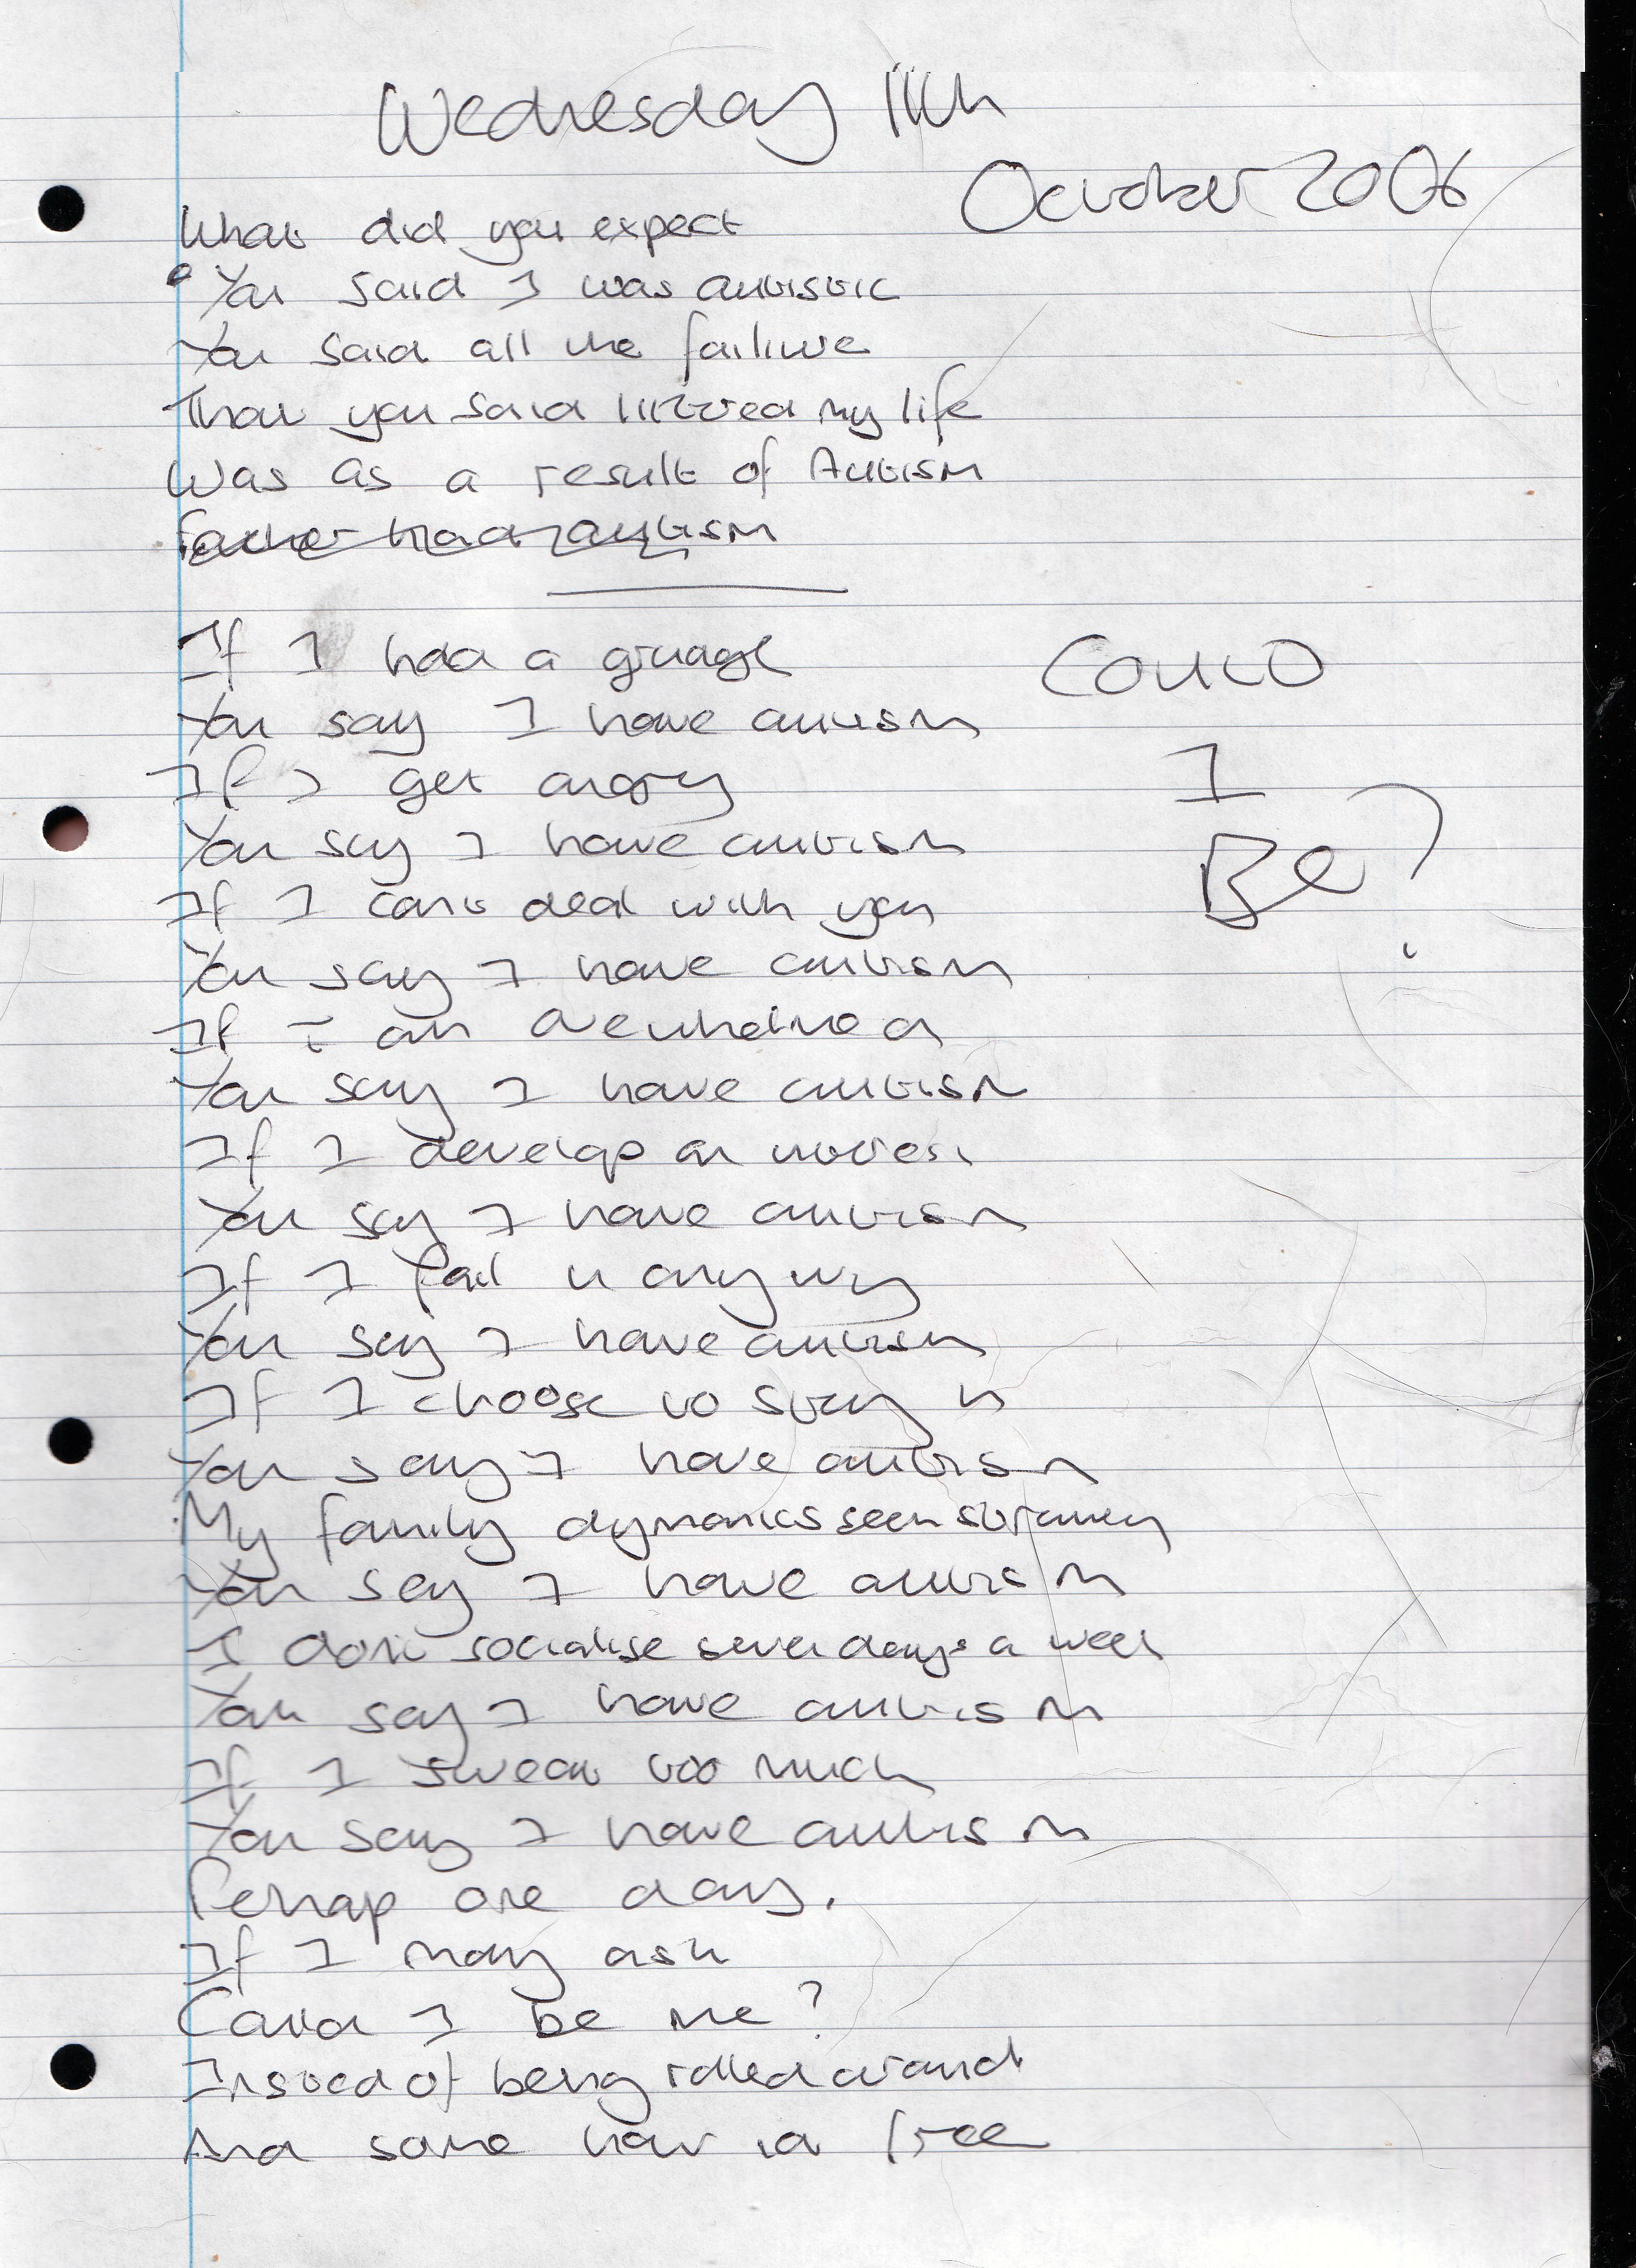 Wednesday 11th
October 2006
What did you expect
You said I was autistic
You said all the failure
That you said littered my life
Was as a result of Autism
Father had autism
If I had a grudge
You say I have autism
If I get angry
You say I have autism
If I cant deal with you
You say I have autism
If I am
You say I have autism
If I develop an
You say I have autism
If I fail in any way
You say I have autism
If I choose to stay in
You say I have autism
My family dynamics seem
You say I have autism
I dont socialise seven days a week
You say I have autism
If I swear too much
You say I have autism
Perhap one day.
If I may ask
Could I be me?
Instead of being around
And some how free
Could
I
Be?